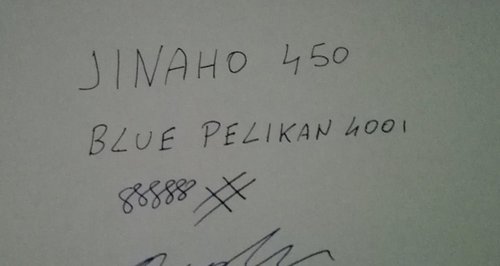 JINAHO 450
BLUE PELIKAN 4001
88888